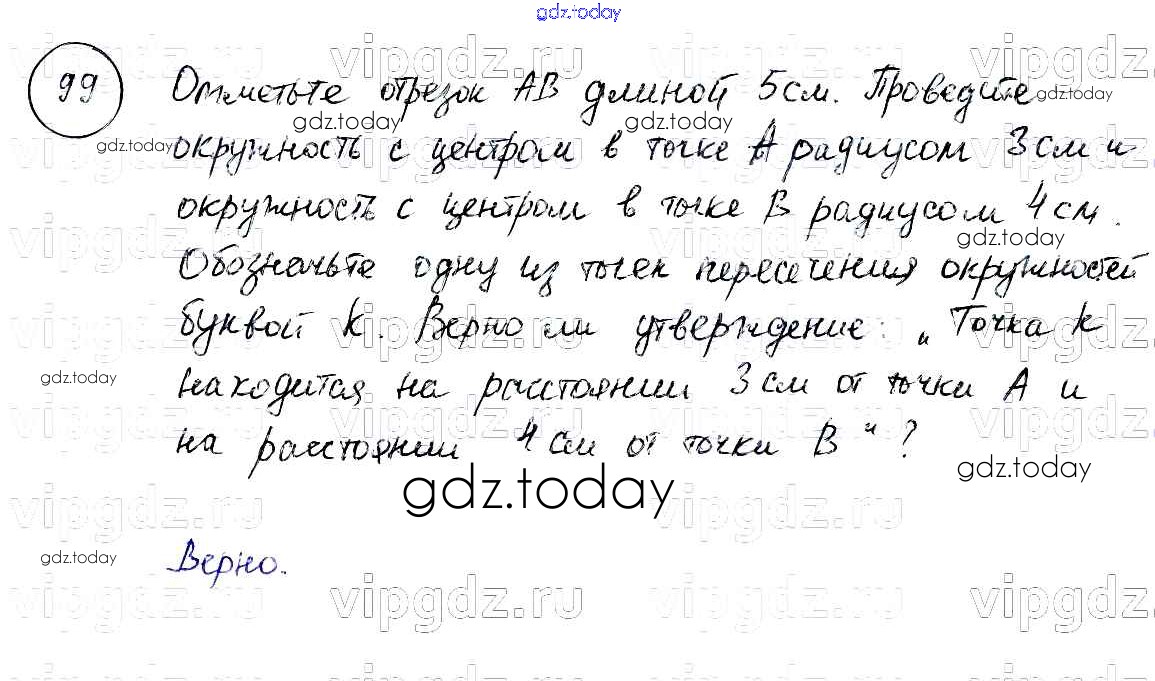 gdz.today
99 Отметьте отрезок АВ длиной 5 см. Проведите
окружность с центром в точке А радиусом 3 см и
окружность с центром в точке В радиусом 4 см.
Обозначьте одну из точек пересечения окружностей
буквой К. Верно ли утверждение: „Точка К
находится на расстоянии 3 см от точки А и
на расстоянии 4 см от точки В“?
gdz.today
Верно.
vipgdz.ru